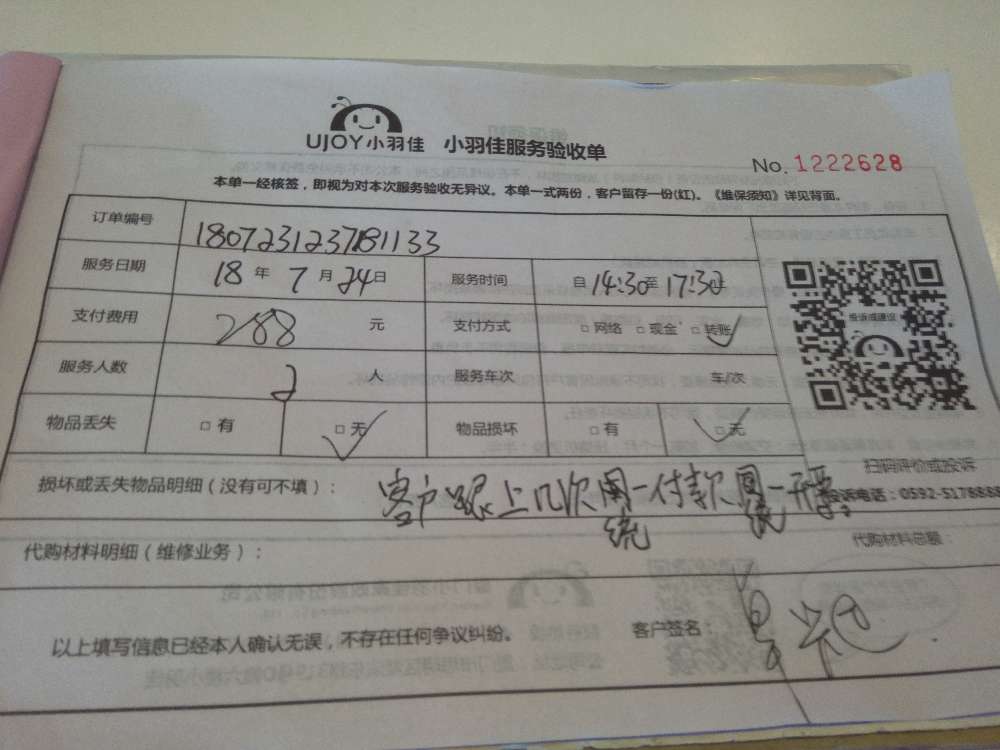 UJOY小羽佳 小羽佳服务验收单
No. 1222628
本单一经核签，即视为对本次服务验收无异议。本单一式两份，客户留存一份(红)。《维保须知》详见背面。
订单编号 1807231237181133
服务日期 18 年 7 月 24 日 服务时间 自 14:30 至 17:30 止
支付费用 288 元 支付方式 □网络 □现金 □转账 ✓
投诉或建议
服务人数 2 人 服务车次 车/次
物品丢失 □有 □无 ✓ 物品损坏 □有 □无 ✓
扫码评价或投诉
损坏或丢失物品明细（没有可不填）： 客户跟上几次统一付款统一开票。
投诉电话：0592-5178888
代购材料明细（维修业务）： 代购材料总额：
以上填写信息已经本人确认无误，不存在任何争议纠纷。 客户签名：